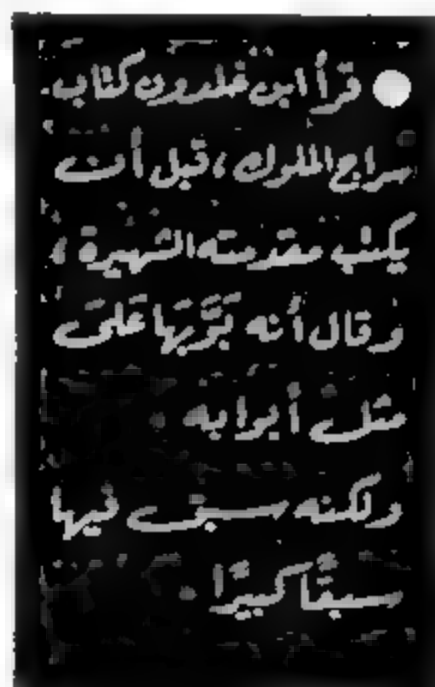 قرأ ابن خلدون كتاب
سراج الملوك ، قبل أن
يكتب مقدمته الشهيرة ،
وقال أنه بَوَّبَها عَلى
مثل أبوابه .
ولكنه سبق فيها
سبقًا كبيرًا .